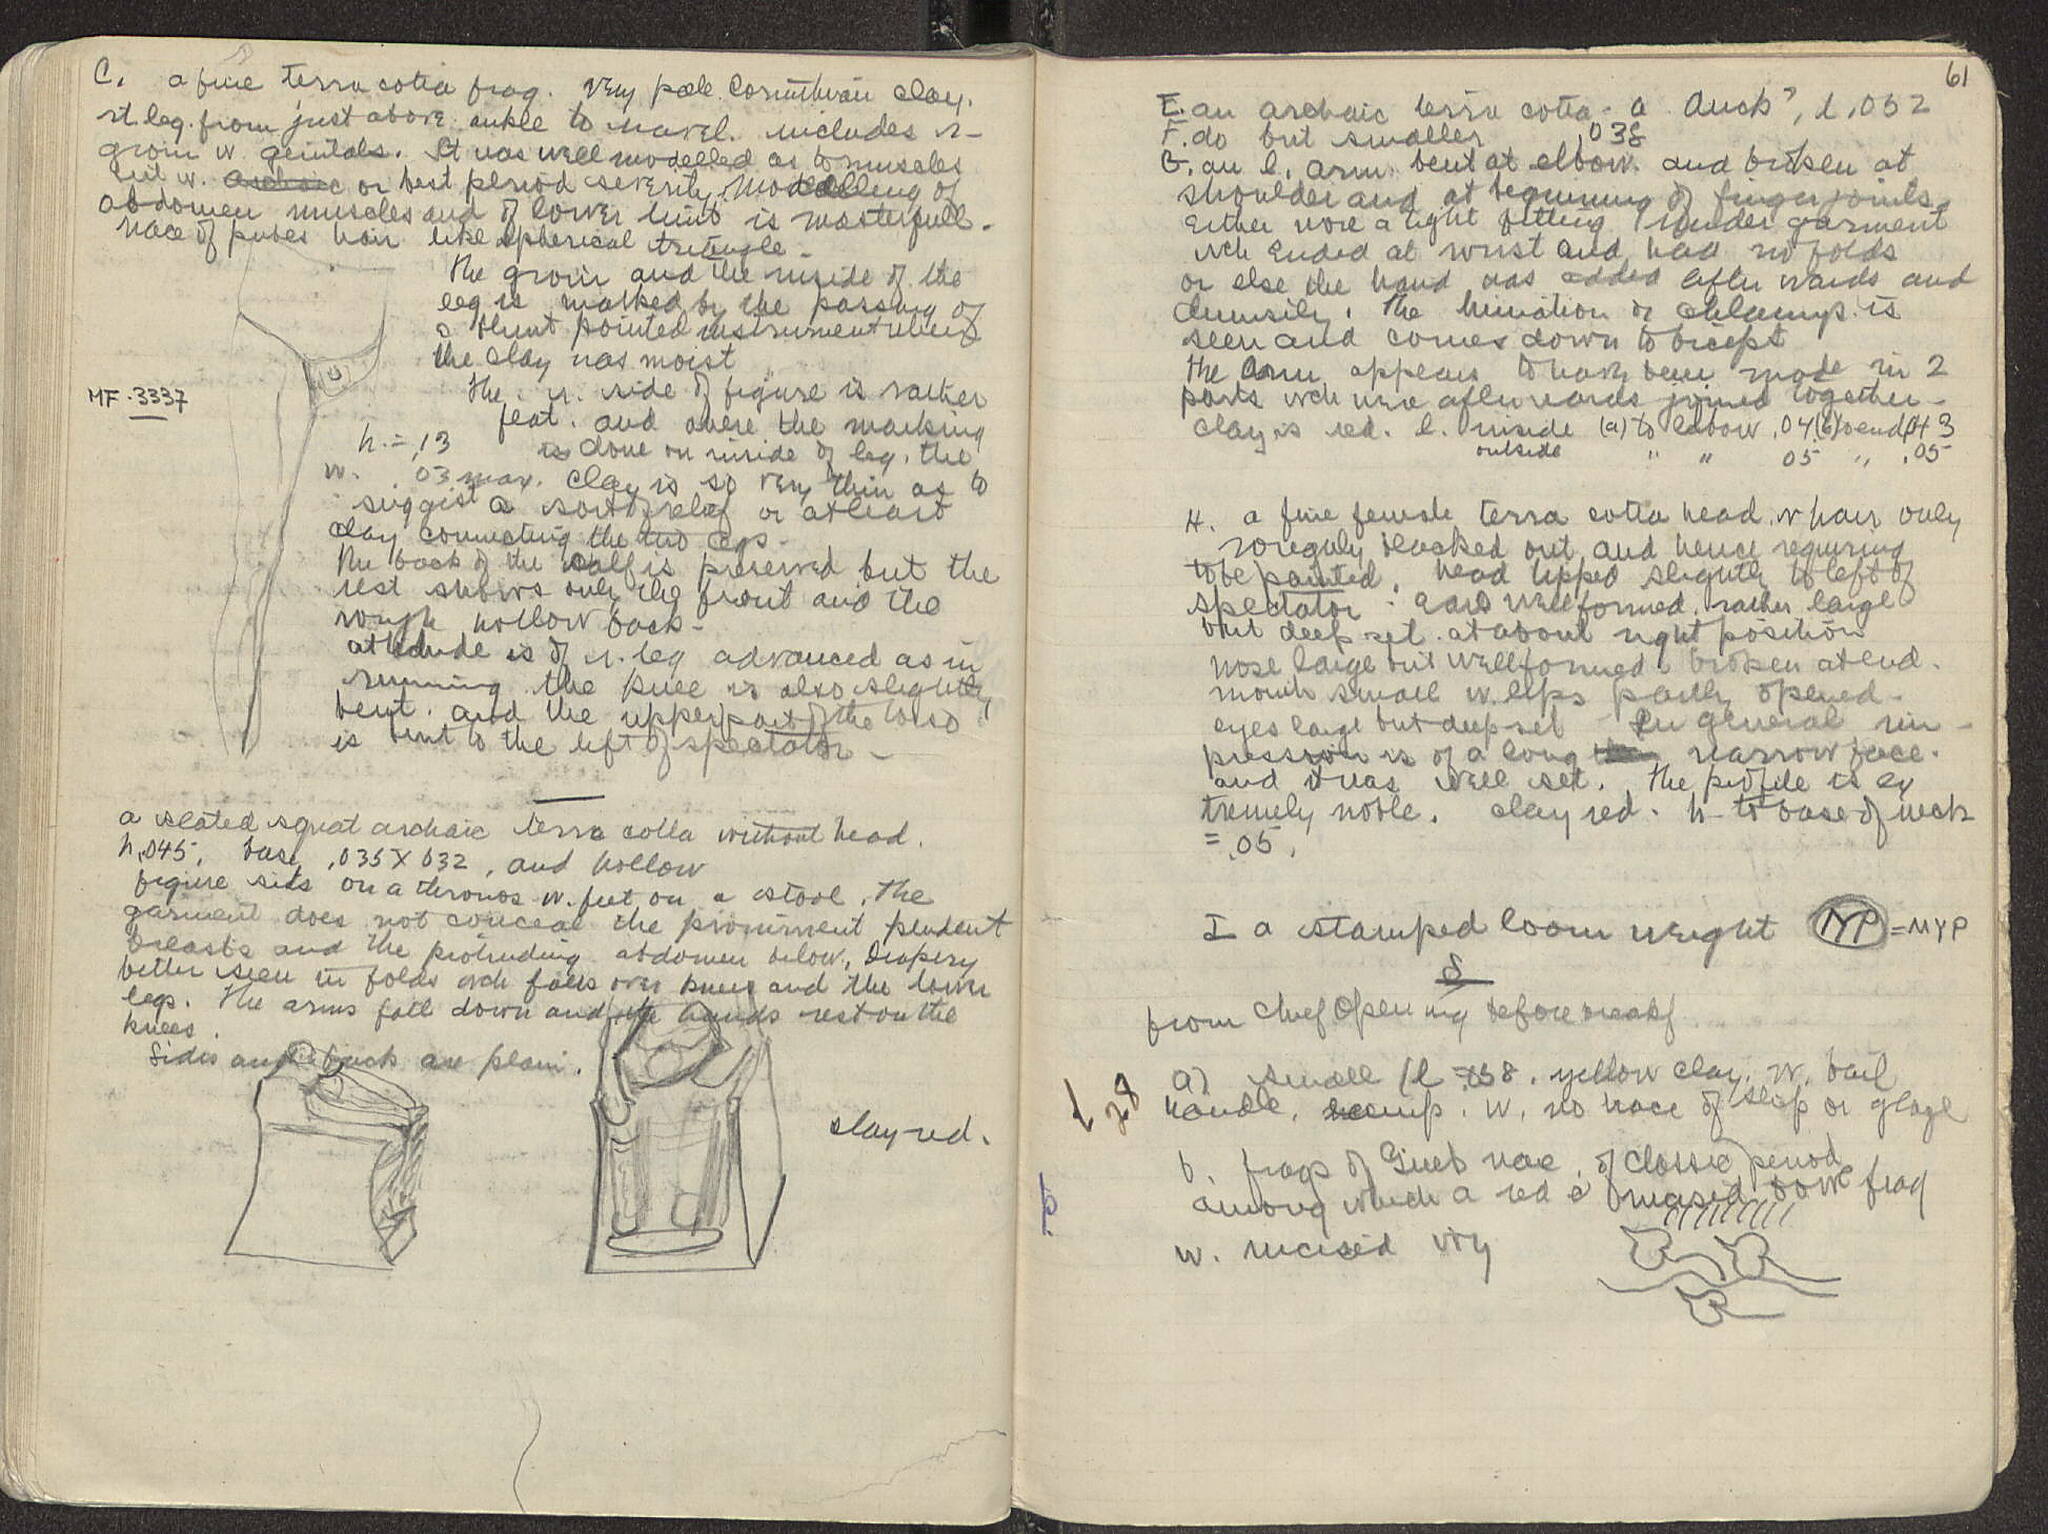 C. a fine terra cotta frag. Very pale Corinthian clay.
rt leg. from just above ankle to navel. includes r
groin w. genitals. It was well modelled as to muscles
but w. archaic or best period severity. Modelling of
abdomen muscles and of lower limb is masterfull.
trace of pubes hair like spherical triangle.
The groin and the inside of the
leg is marked by the passing of
a blunt pointed instrument when
the clay was moist
MF. 3337
The r. side of figure is rather
flat. and where the marking
h. = .13 is done on inside of leg. the
w. .03 max. clay is so very thin as to
suggest a sort of relief or at least
clay connecting the two legs.
The back of the calf is preserved but the
rest shows only the front and the
rough hollow back.
attitude is of r. leg advanced as in
running the knee is also slightly
bent. and the upper part of the torso
is bent to the left of spectator.
a seated squat archaic terra cotta without head.
h. .045. base .035 X 032, and hollow
figure sits on a thronos w. feet on a stool. The
garment does not conceal the prominent pendent
breasts and the protruding abdomen below. Drapery
better seen in folds wch falls over knees and the lower
legs. The arms fall down and the hands rest on the
knees.
Sides and back are plain.
clay red.
61
E. an archaic terra cotta. a duck?, l .052
F. do but smaller .038
G. an l. arm bent at elbow. and broken at
shoulder and at beginning of finger joints.
Either wore a tight fitting under garment
wch ended at wrist and had no folds
or else the hand was added afterwards and
clumsily. The himation or chlamys is
seen and comes down to bicept
The arm appears to have been made in 2
parts wch were afterwards joined together.
clay is red. l. inside (a) to elbow .04 (b) to end .043
outside " " 05 " .05
H. a fine female terra cotta head. w hair only
roughly blocked out and hence requiring
to be painted. head tipped slightly to left of
spectator. Ears well formed. rather large
but deep set. at about right position
nose large but well formed. broken at end.
mouth small w. lips partly opened.
eyes large but deep set In general im-
pression is of a long narrow face.
and it was well set. The profile is ex
tremely noble. clay red. h to base of neck
= .05.
I a stamped loom weight MYP = MYP
S
from chief opening before breakf
a) small (l = .058. yellow clay. w. bail
handle. lamp. w. no trace of slip or glaze
b. frags of Greek vase. of classic period
among which a red incised bowl frag
w. incised ivy